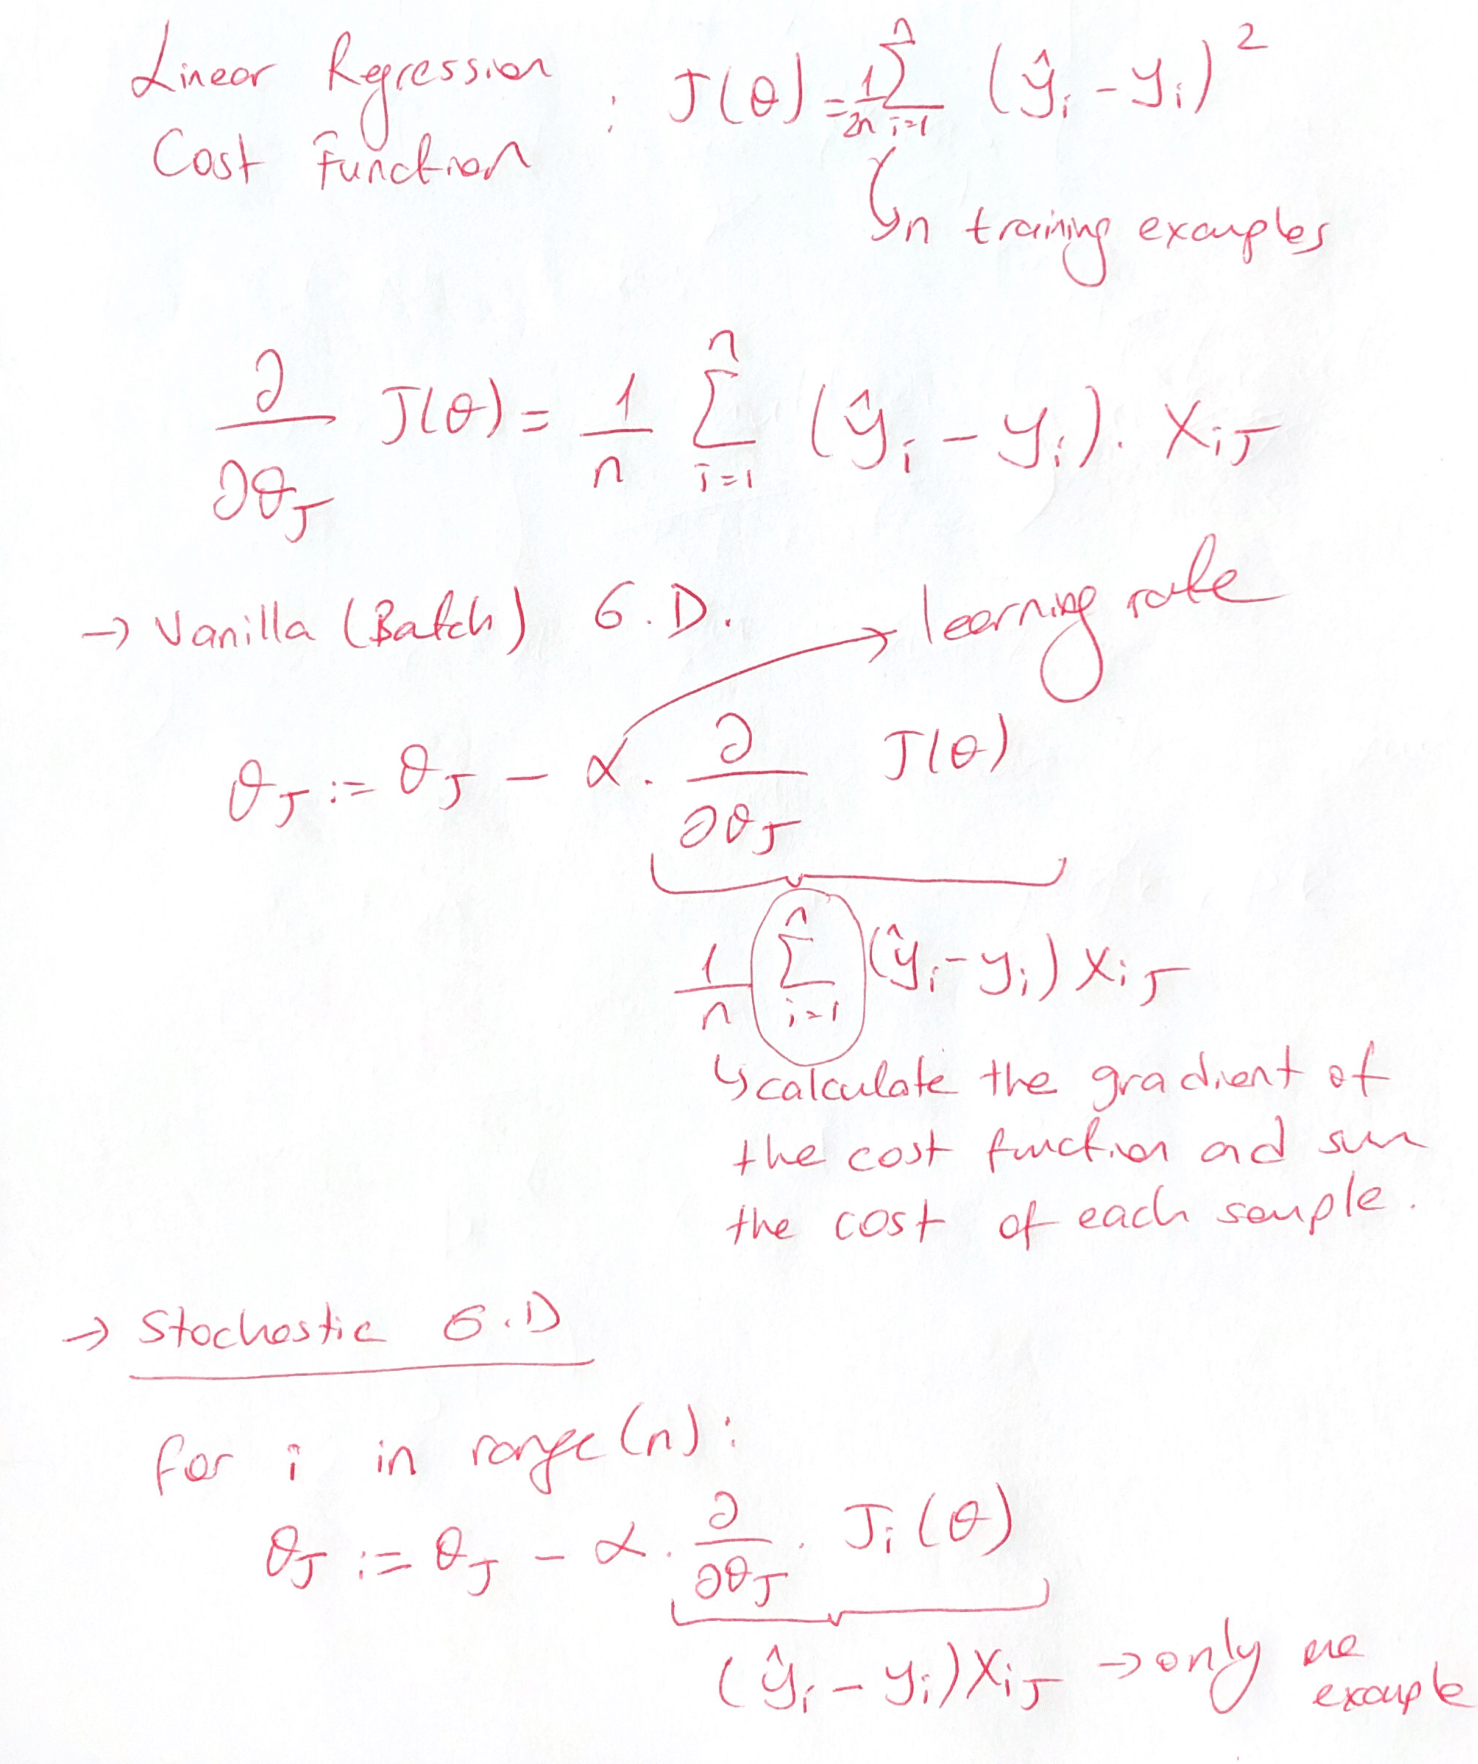 Linear Regression
Cost Function : J(θ) = 1/2n Σ_{i=1}^{n} (ŷ_i - y_i)²
n training examples
∂/∂θ_J J(θ) = 1/n Σ_{i=1}^{n} (ŷ_i - y_i). X_{iJ}
→ Vanilla (Batch) G.D.
learning rate
θ_J := θ_J - α. ∂/∂θ_J J(θ)
1/n Σ_{i=1}^{n} (ŷ_i - y_i) X_{iJ}
↳ calculate the gradient of
the cost function and sum
the cost of each sample.
→ Stochastic G.D
for i in range(n):
θ_J := θ_J - α. ∂/∂θ_J . J_i(θ)
(ŷ_i - y_i) X_{iJ} → only one
example